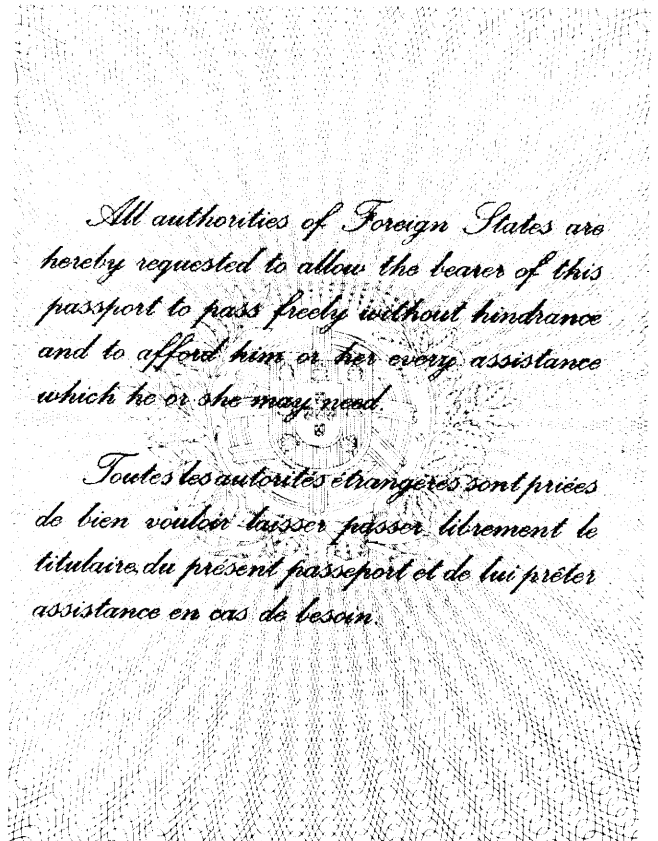 All authorities of Foreign States are
hereby requested to allow the bearer of this
passport to pass freely without hindrance
and to afford him or her every assistance
which he or she may need.
Toutes les autorités étrangères sont priées
de bien vouloir laisser passer librement le
titulaire du présent passeport et de lui prêter
assistance en cas de besoin.